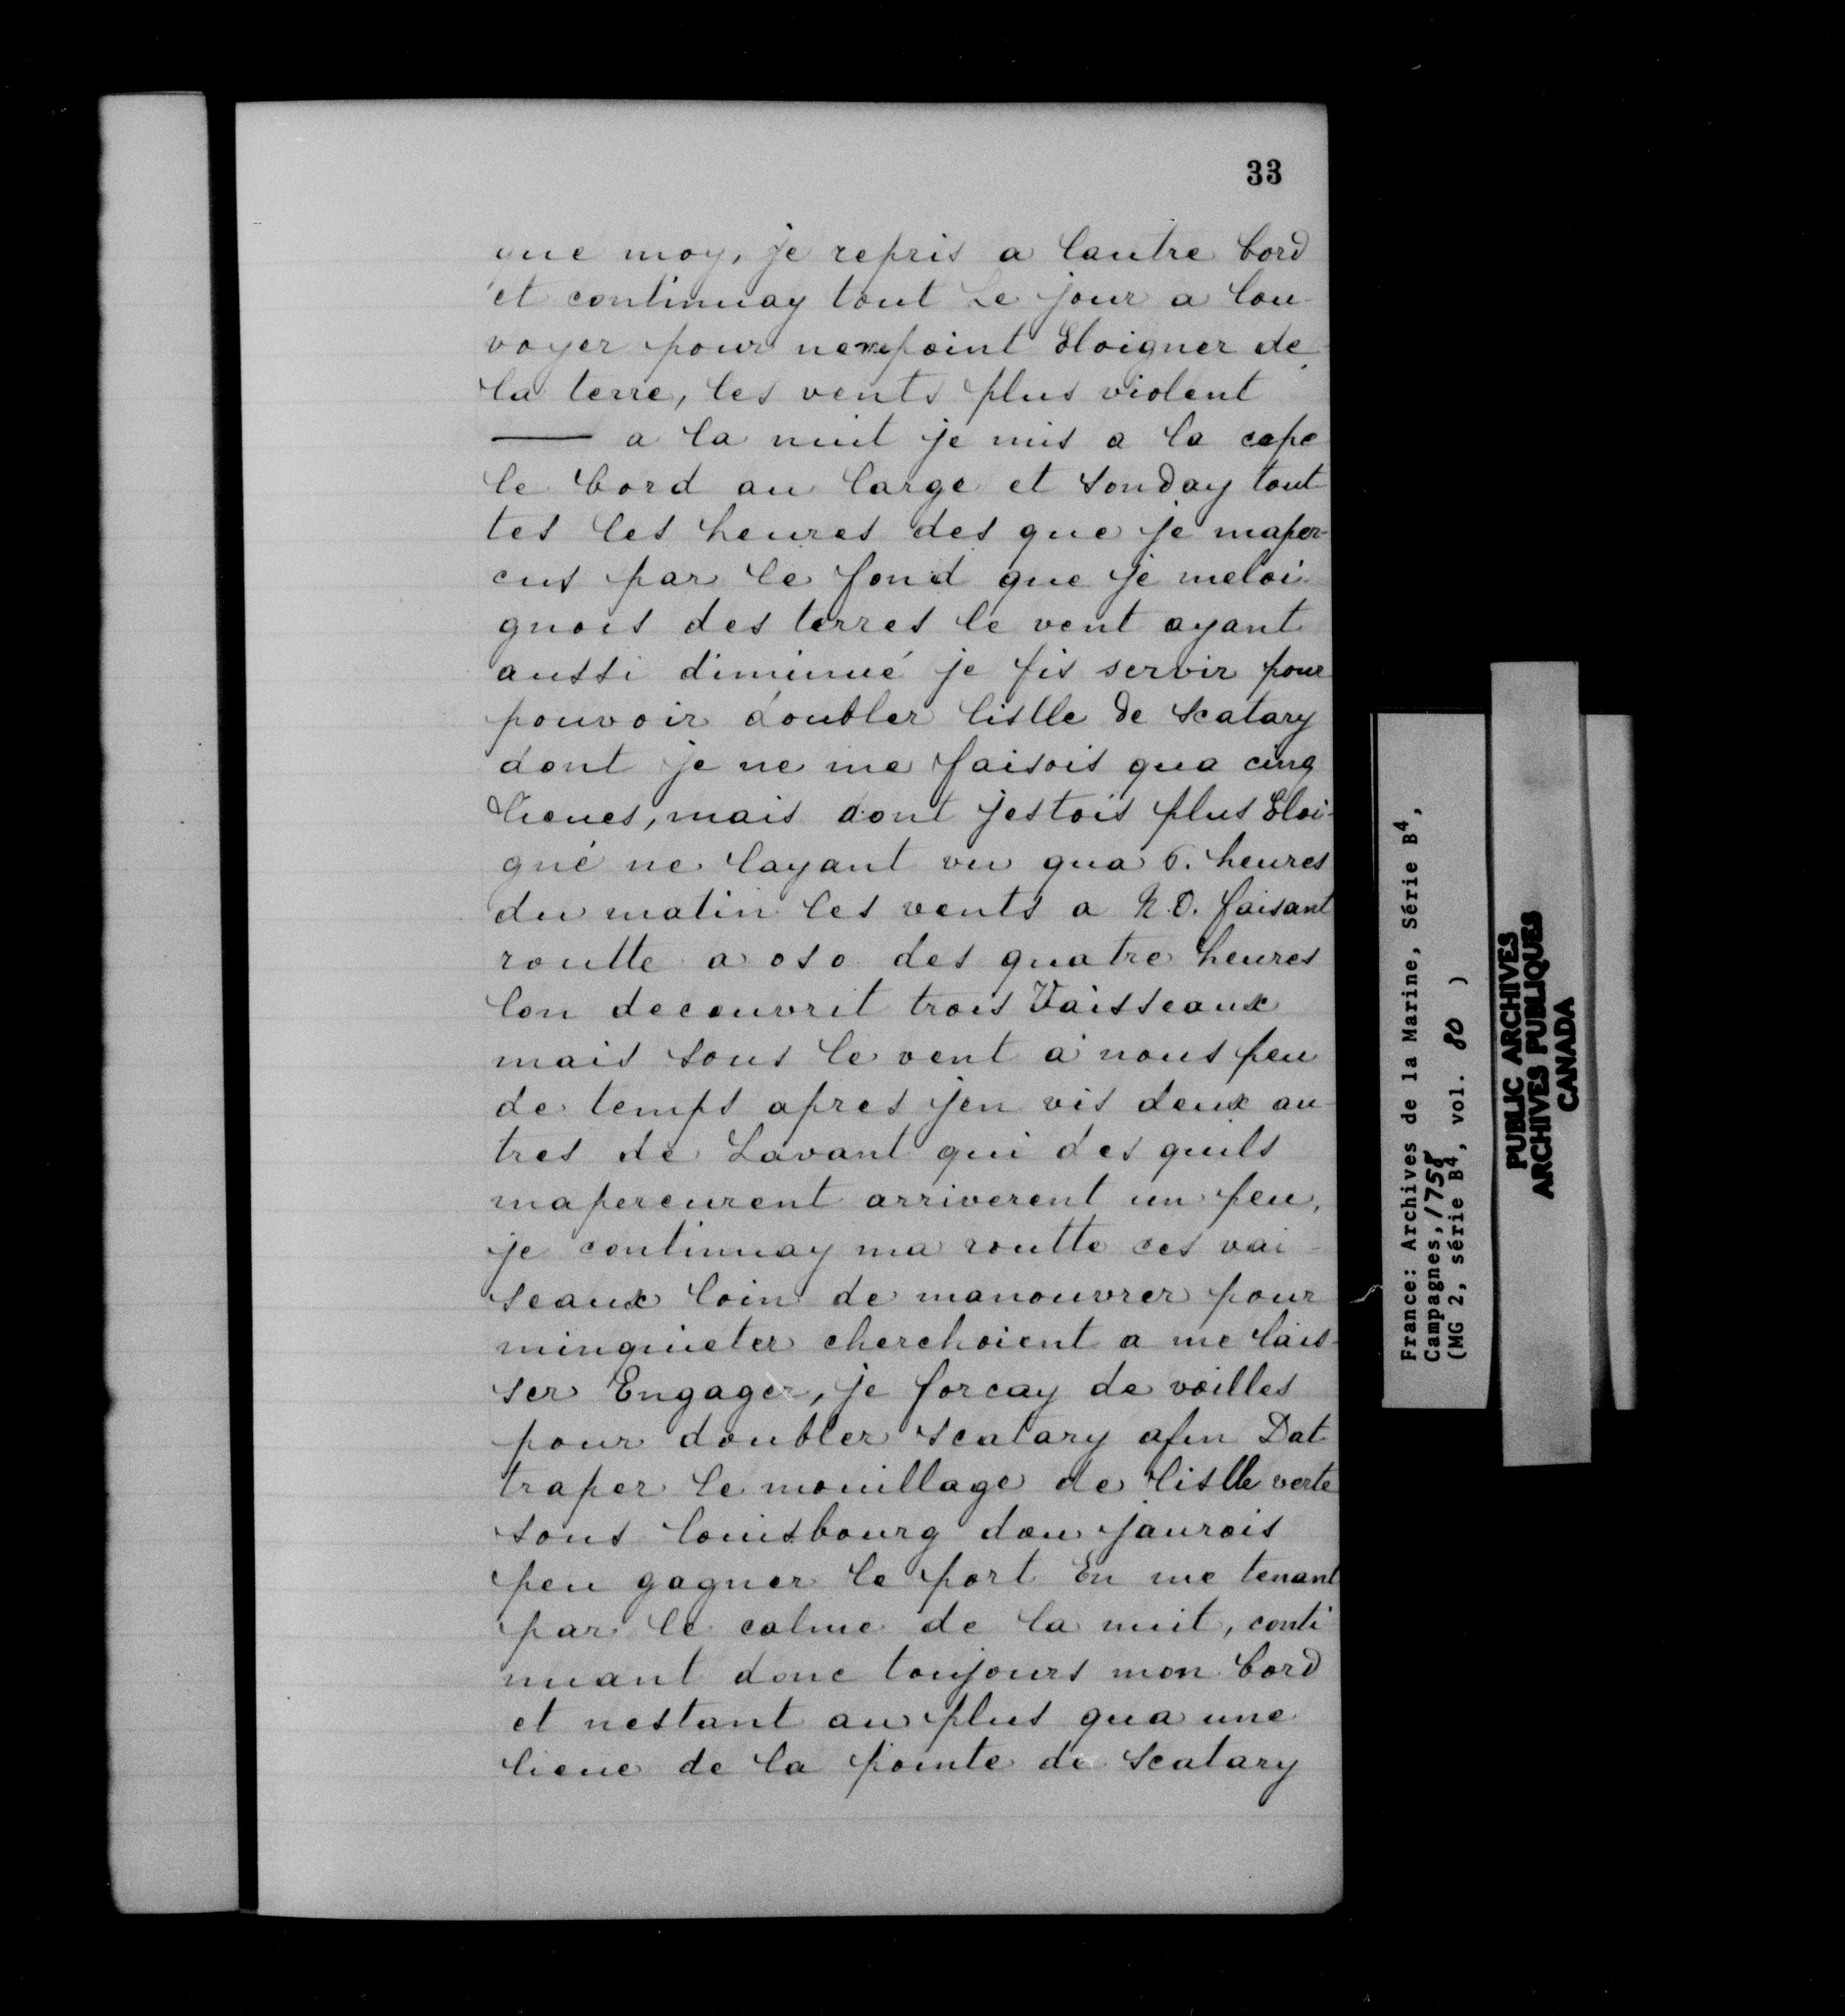 33
que moy, je repris a lautre bord
et continuay tout Le jour a lou-
voyer pour ne me point Eloigner de
la terre, les vents plus violent
— a la nuit je mis a la cape
le bord au large et sonday tout
tes les heures des que je maper-
cus par le fond que je meloi-
gnois des terres le vent ayant
aussi diminué je fis servir pour
pouvoir doubler lislle de Scatary
dont je ne me faisois qua cinq
lieues, mais dont jestois plus Eloi-
gné ne layant vu qua 6. heures
du matin les vents a N.O. faisant
routte a oso des quatre heures
lon decouvrit trois Vaisseaux
mais sous le vent a nous peu
de temps apres jen vis deux au-
tres de Lavant qui des quils
mapercurent arriverent un peu,
je continuay ma routte ces vai-
seaux loin de manouvrer pour
minquieter cherchoient a me lais-
ser Engager, je forcay de voilles
pour doubler Scatary afin Dat-
traper le mouillage de lislle verte
sous louisbourg dou jaurois
peu gagner le port En me tenant
par le calme de la nuit, conti
nuant donc toujours mon bord
et nestant au plus qua une
lieue de la pointe de Scatary
France: Archives de la Marine, Série B4,
Campagnes, 1758
(MG 2, série B4, vol. 80 )
PUBLIC ARCHIVES
ARCHIVES PUBLIQUES
CANADA